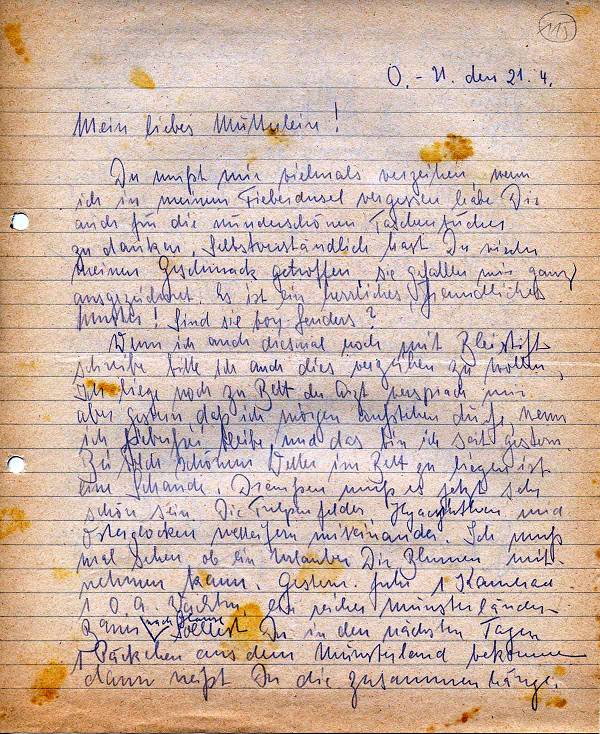 115
O.-U. den 21. 4.
Mein liebes Mütterlein!
Du mußt mir vielmals verzeihen, wenn
ich in meinem Fieberdusel vergessen habe Dir
auch für die wunderschönen Taschentücher
zu danken. Selbstverständlich hast Du wieder
meinen Geschmack getroffen, sie gefallen mir ganz
ausgezeichnet. Es ist ein herrliches, freundliches
Muster! Sind sie von
Wenn ich auch diesmal noch mit Bleistift
schreibe bitte ich auch dies verzeihen zu wollen.
Ich liege noch zu Bett der Arzt versprach mir
aber gestern daß ich morgen aufstehen dürfe, wenn
ich fieberfrei bleibe, und das bin ich seit gestern.
Bei solch schönem Wetter im Bett zu liegen ist
eine Schande. Draußen muß es jetzt sehr
schön sein. Die Tulpenfelder Hyazinthen und
Osterglocken wetteifern miteinander. Ich muß
mal sehen ob ein Urlauber Dir Blumen mit-
nehmen kann. Gestern fuhr 1 Kamerad
1 O.A. ein reicher Münsterländer
Bauer nach Hause Solltest Du in den nächsten Tagen
1 Päckchen aus dem Münsterland bekommen
dann weißt Du die zusammenhänge.